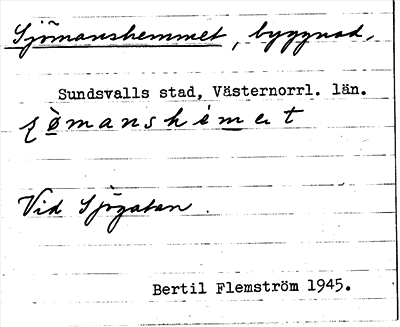 Sjömanshemmet, byggnad,
Sundsvalls stad, Västernorrl. län.
Vid Sjögatan.
Bertil Flemström 1945.